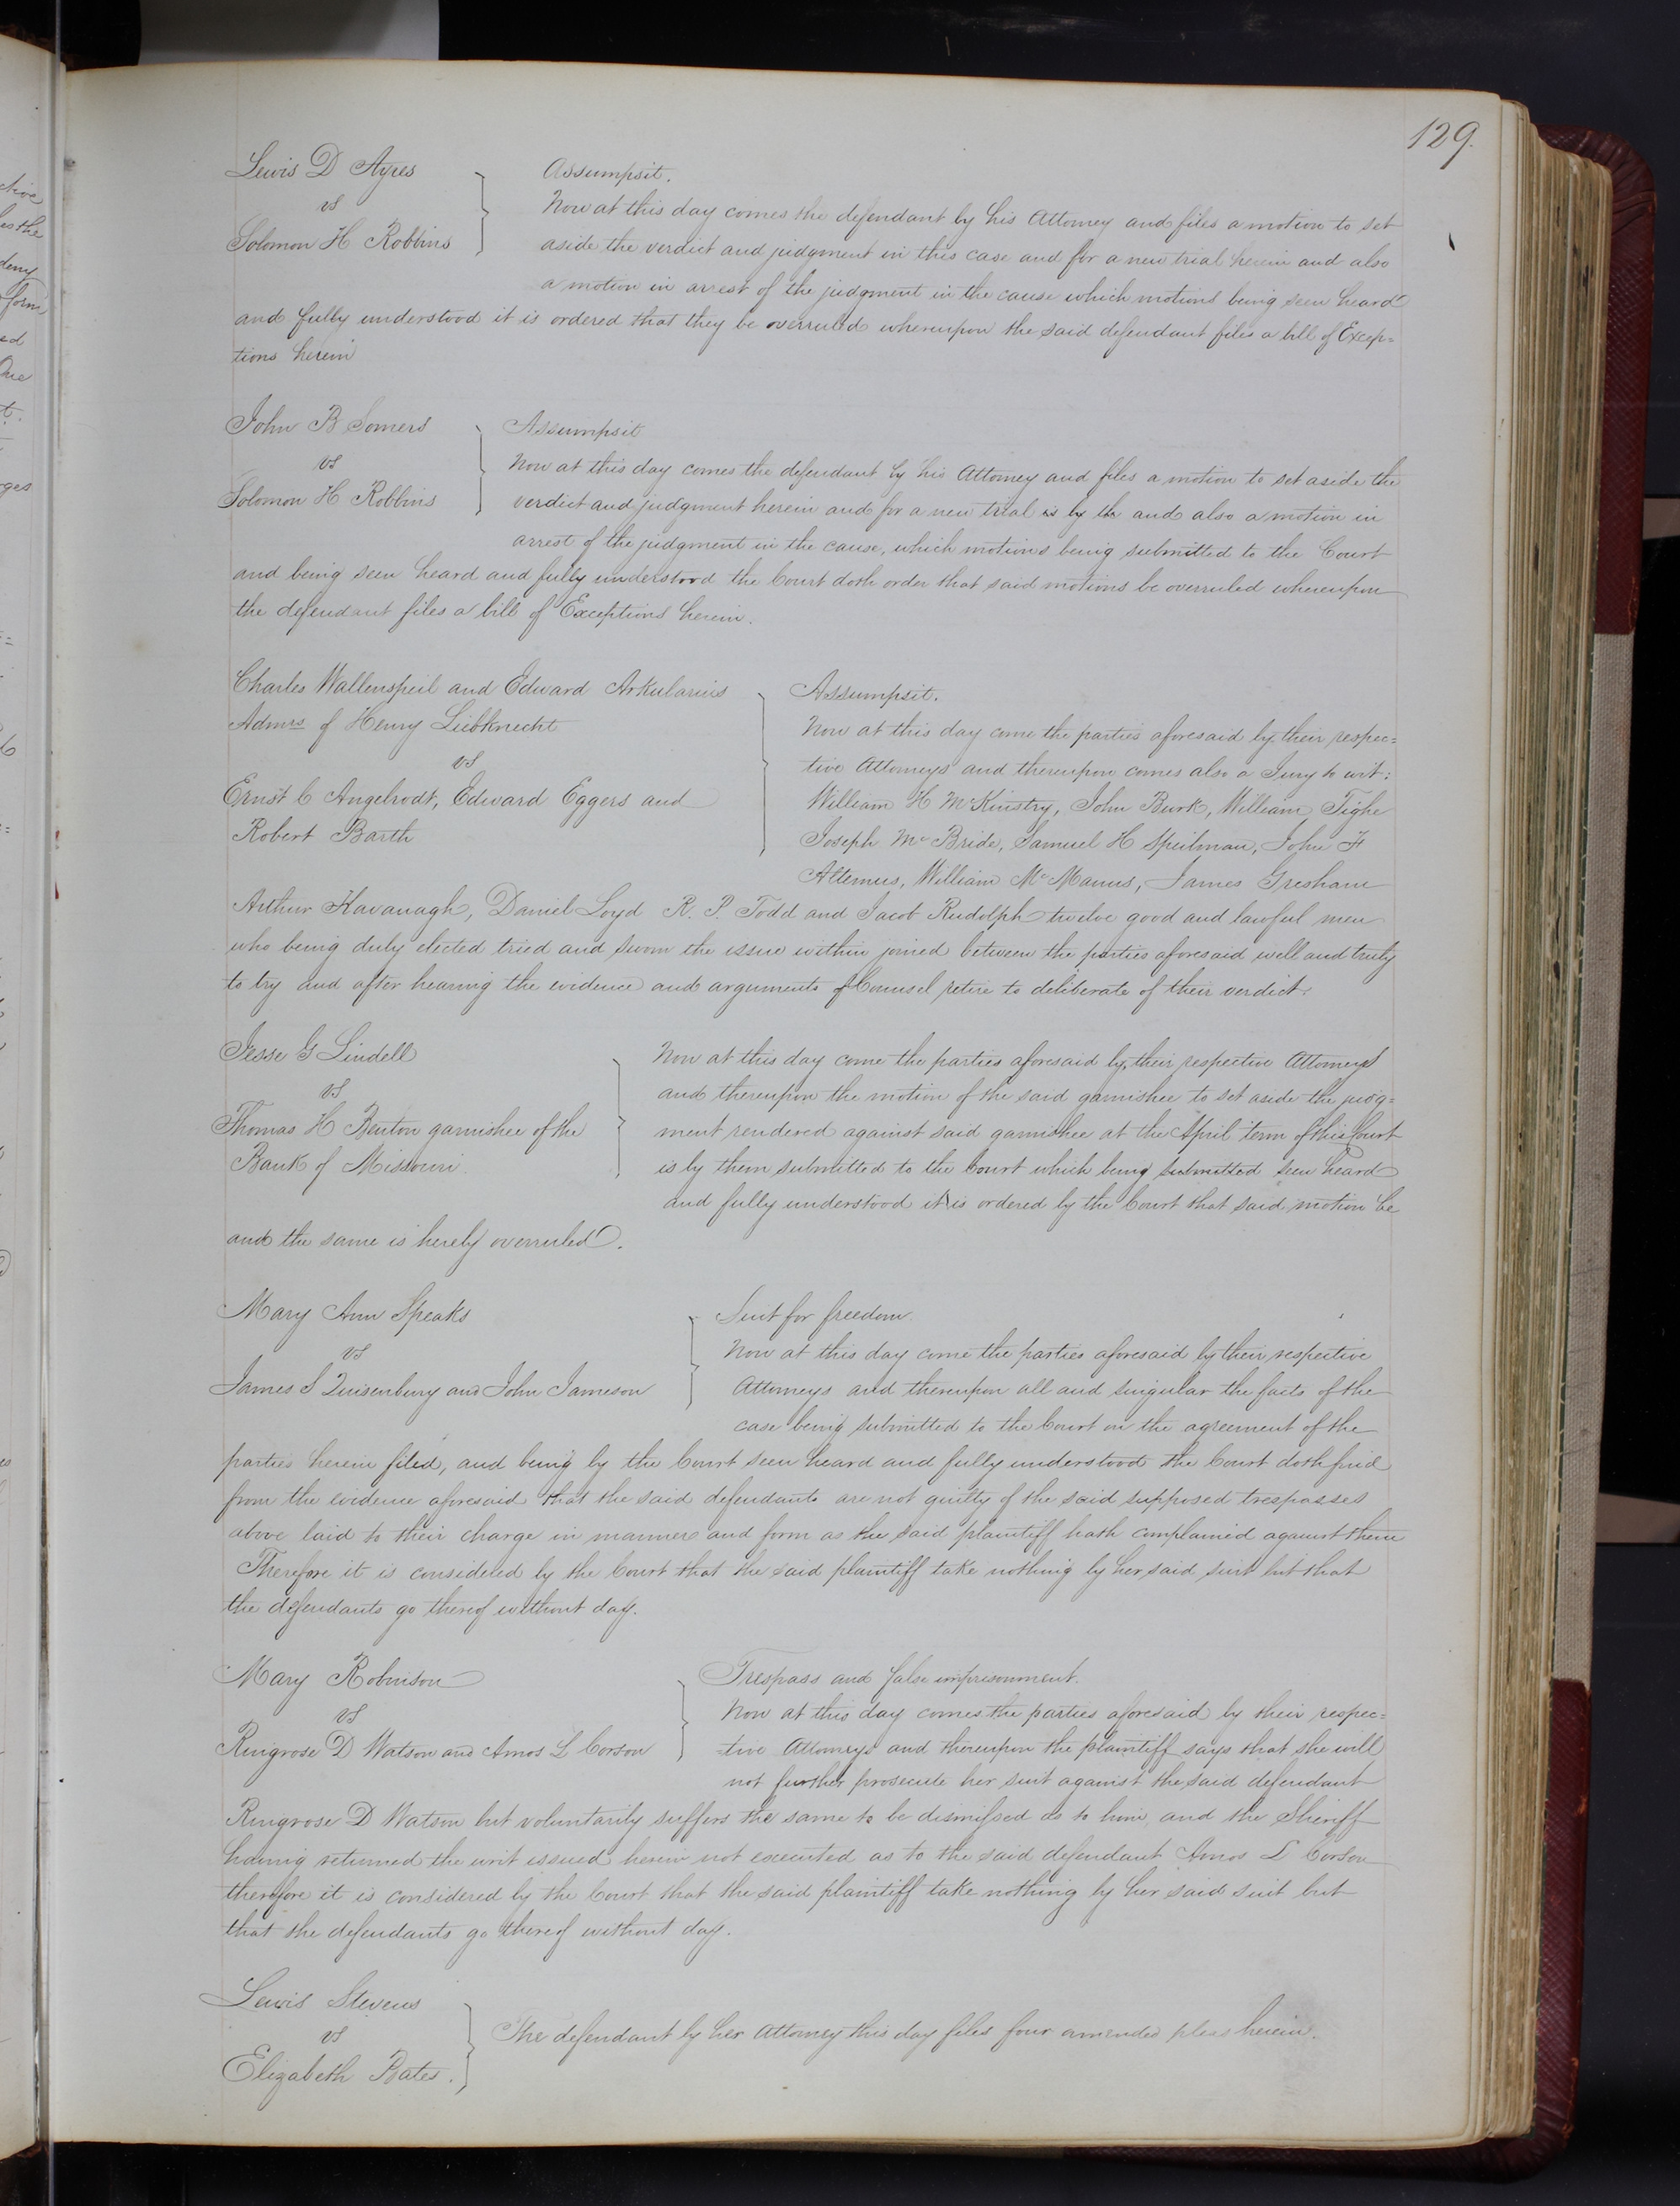 129.
Lewis D Ayres
vs
Solomon H Robbins
Assumpsit.
Now at this day comes the defendant by his Attorney and files a motion to set
aside the verdict and judgment in this case and for a new trial herein and also
a motion in arrest of the judgment in the cause which motions being seen heard
and fully understood it is ordered that they be overruled whereupon the said defendant files a bill of Excep=
tions herein
John B Somers
vs
Solomon H Robbins
Assumpsit
Now at this day comes the defendant by his Attorney and files a motion to set aside the
verdict and judgment herein and for a new trial is by the and also a motion in
arrest of the judgment in the cause, which motions being submitted to the Court
and being seen heard and fully understood the Court doth order that said motions be overruled whereupon
the defendant files a bill of Exceptions herein.
Charles Wallenspeil and Edward Arkularius
Admrs of Henry Liebknecht
vs
Ernst C Angelrodt, Edward Eggers and
Robert Barth
Assumpsit.
Now at this day come the parties aforesaid by their respec=
tive Attorneys and thereupon comes also a Jury to wit:
William H McKinstry, John Burk, William Tighe
Joseph McBride, Samuel H Speilman, John F
Altemus, William McManus, James Gresham
Arthur Kavanagh, Daniel Loyd R. P. Todd and Jacob Rudolph twelve good and lawful men
who being duly elected tried and sworn the issue within joined between the parties aforesaid well and truly
to try and after hearing the evidence and arguments of Counsel retire to deliberate of their verdict.
Jesse G Lindell
vs
Thomas H Benton garnishee of the
Bank of Missouri.
Now at this day come the parties aforesaid by their respective Attorneys
and thereupon the motion of the said garnishee to set aside the judg=
ment rendered against said garnishee at the April term of this Court
is by them submitted to the Court which being submitted seen heard
and fully understood it is ordered by the Court that said motion be
and the same is hereby overruled.
Mary Ann Speaks
vs
James S Quisenbury and John Jameson
Suit for freedom.
Now at this day come the parties aforesaid by their respective
Attorneys and thereupon all and singular the facts of the
case being submitted to the Court on the agreement of the
parties herein filed, and being by the Court seen heard and fully understood the Court doth find
from the evidence aforesaid that the said defendants are not guilty of the said supposed trespasses
above laid to their charge in manner and form as the said plaintiff hath complained against them
Therefore it is considered by the Court that the said plaintiff take nothing by her said suit but that
the defendants go thereof without day.
Mary Robinson
vs
Ringrose D Watson and Amos L Corson
Trespass and false imprisonment.
Now at this day comes the parties aforesaid by their respec=
tive Attorneys and thereupon the plaintiff says that she will
not further prosecute her suit against the said defendant
Ringrose D Watson but voluntarily suffers the same to be dismissed as to him, and the Sheriff
having returned the writ issued herein not executed as to the said defendant Amos L Corson
therefore it is considered by the Court that the said plaintiff take nothing by her said suit but
that the defendants go thereof without day.
Lewis Stevens
vs
Elizabeth Bates.
The defendant by her Attorney this day files four amended pleas herein.